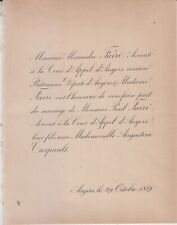 Monsieur Alexandre Fairé Avocat
à la Cour d'Appel d'Angers ancien
Bâtonnier Député d'Angers & Madame
Fairé ont l'honneur de vous faire part
du mariage de Monsieur Paul Fairé
Avocat à la Cour d'Appel d'Angers
leur fils avec Mademoiselle Augustine
Curpault.
Angers, le 29 Octobre 1889